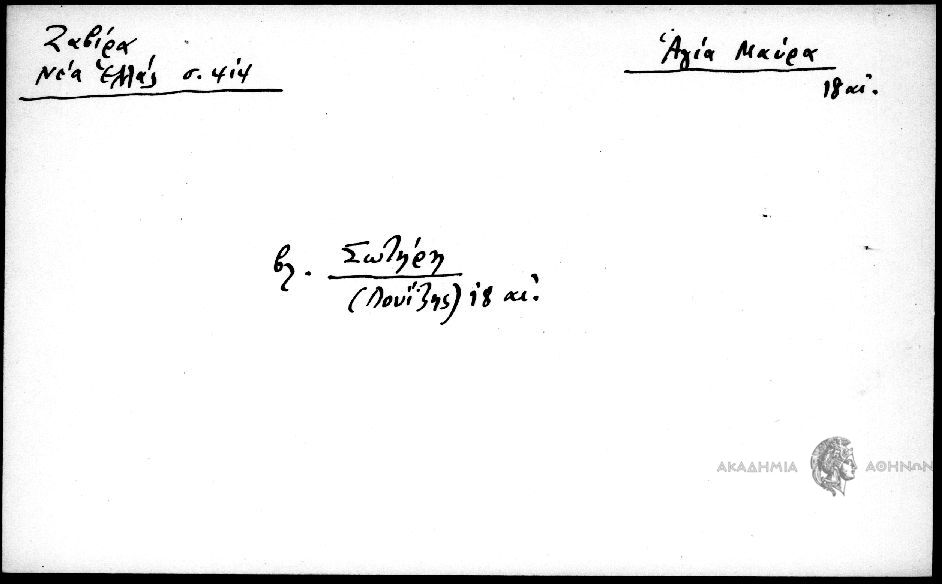 Ζαβίρα
Νέα Ἑλλάς σ. 414
Ἁγία Μαύρα
18 αἰ.
βλ. Σωτήρη
(Λουΐζης) 18 αἰ.
ΑΚΑΔΗΜΙΑ ΑΘΗΝΩΝ